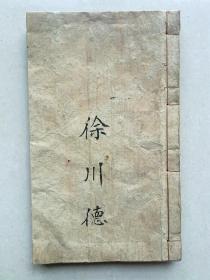 徐川德